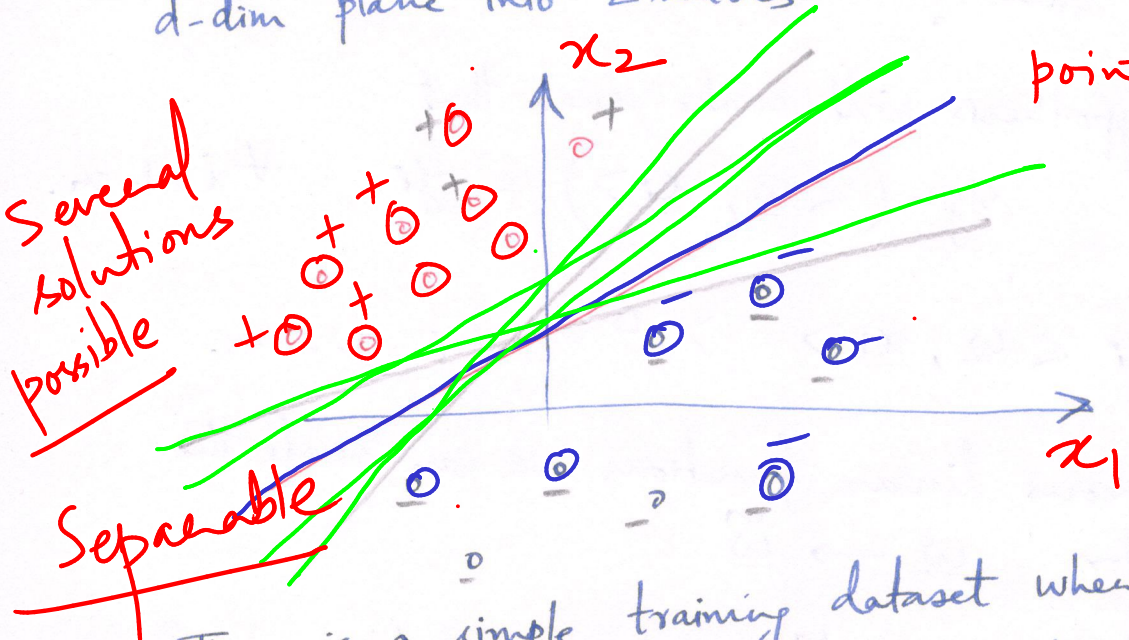 d-dim plane into
x2
poin
Several
solutions
possible
x1
Separable
is a simple training dataset when